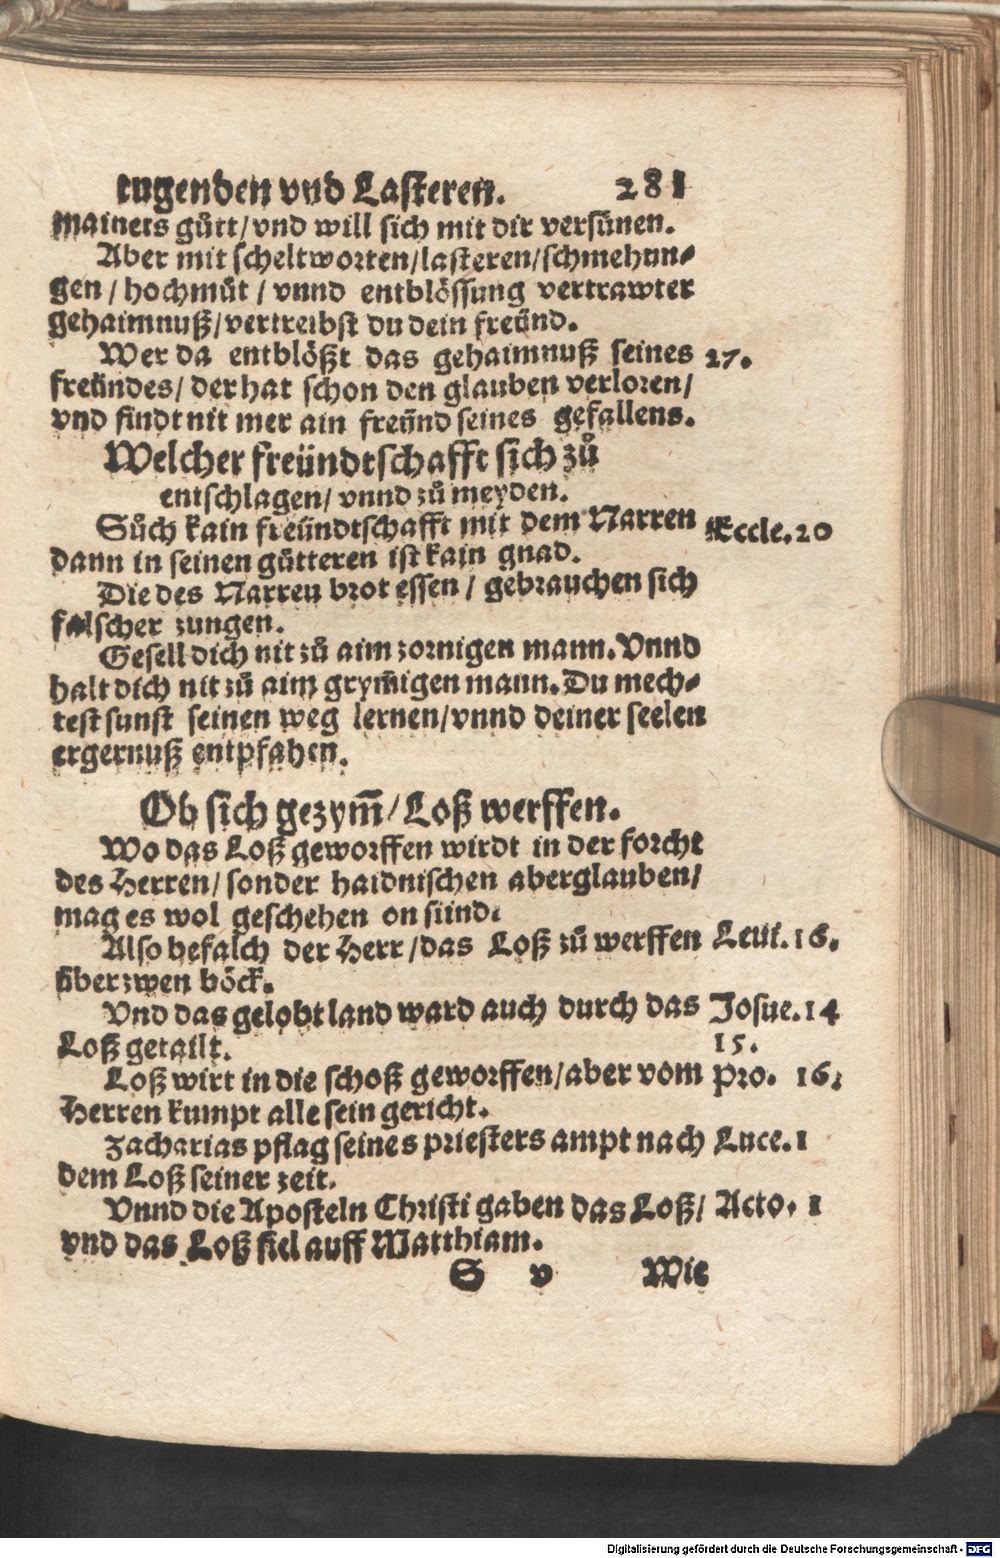 tugenden vnd Lasteren. 281
mainets gůtt/ vnd will sich mit dir versünen.
Aber mit scheltworten/ lasteren/ schmehun⸗
gen / hochmůt / vnnd entblössung vertrawter
gehaimnuß/ vertreibst du dein freünd.
Wer da entblößt das gehaimnuß seines 27.
freündes/ der hat schon den glauben verloren/
vnd findt nit mer ain freünd seines gefallens.
Welcher freündtschafft sich zů
entschlagen/ vnnd zů meyden.
Sůch kain freündtschafft mit dem Narren Eccle. 20
dann in seinen gůtteren ist kain gnad.
Die des Narren brot essen / gebrauchen sich
falscher zungen.
Gesell dich nit zů aim zornigen mann. Vnnd
halt dich nit zů aim grym̃igen mann. Du mech⸗
test sunst seinen weg lernen/ vnnd deiner seelen
ergernuß entpfahen.
Ob sich gezym̃/ Loß werffen.
Wo das Loß geworffen wirdt in der forcht
des Herren/ sonder haidnischen aberglauben/
mag es wol geschehen on sünd.
Also befalch der Herr/ das Loß zů werffen Leui. 16.
über zwen böck.
Vnd das gelobt land ward auch durch das Josue. 14
Loß getailt. 15.
Loß wirt in die schoß geworffen/ aber vom Pro. 16.
Herren kumpt alle sein gericht.
Zacharias pflag seines priesters ampt nach Luce. 1
dem Loß seiner zeit.
Vnnd die Aposteln Christi gaben das Loß/ Acto. 1
vnd das Loß fiel auff Matthiam.
S v Wie
Digitalisierung gefördert durch die Deutsche Forschungsgemeinschaft - DFG